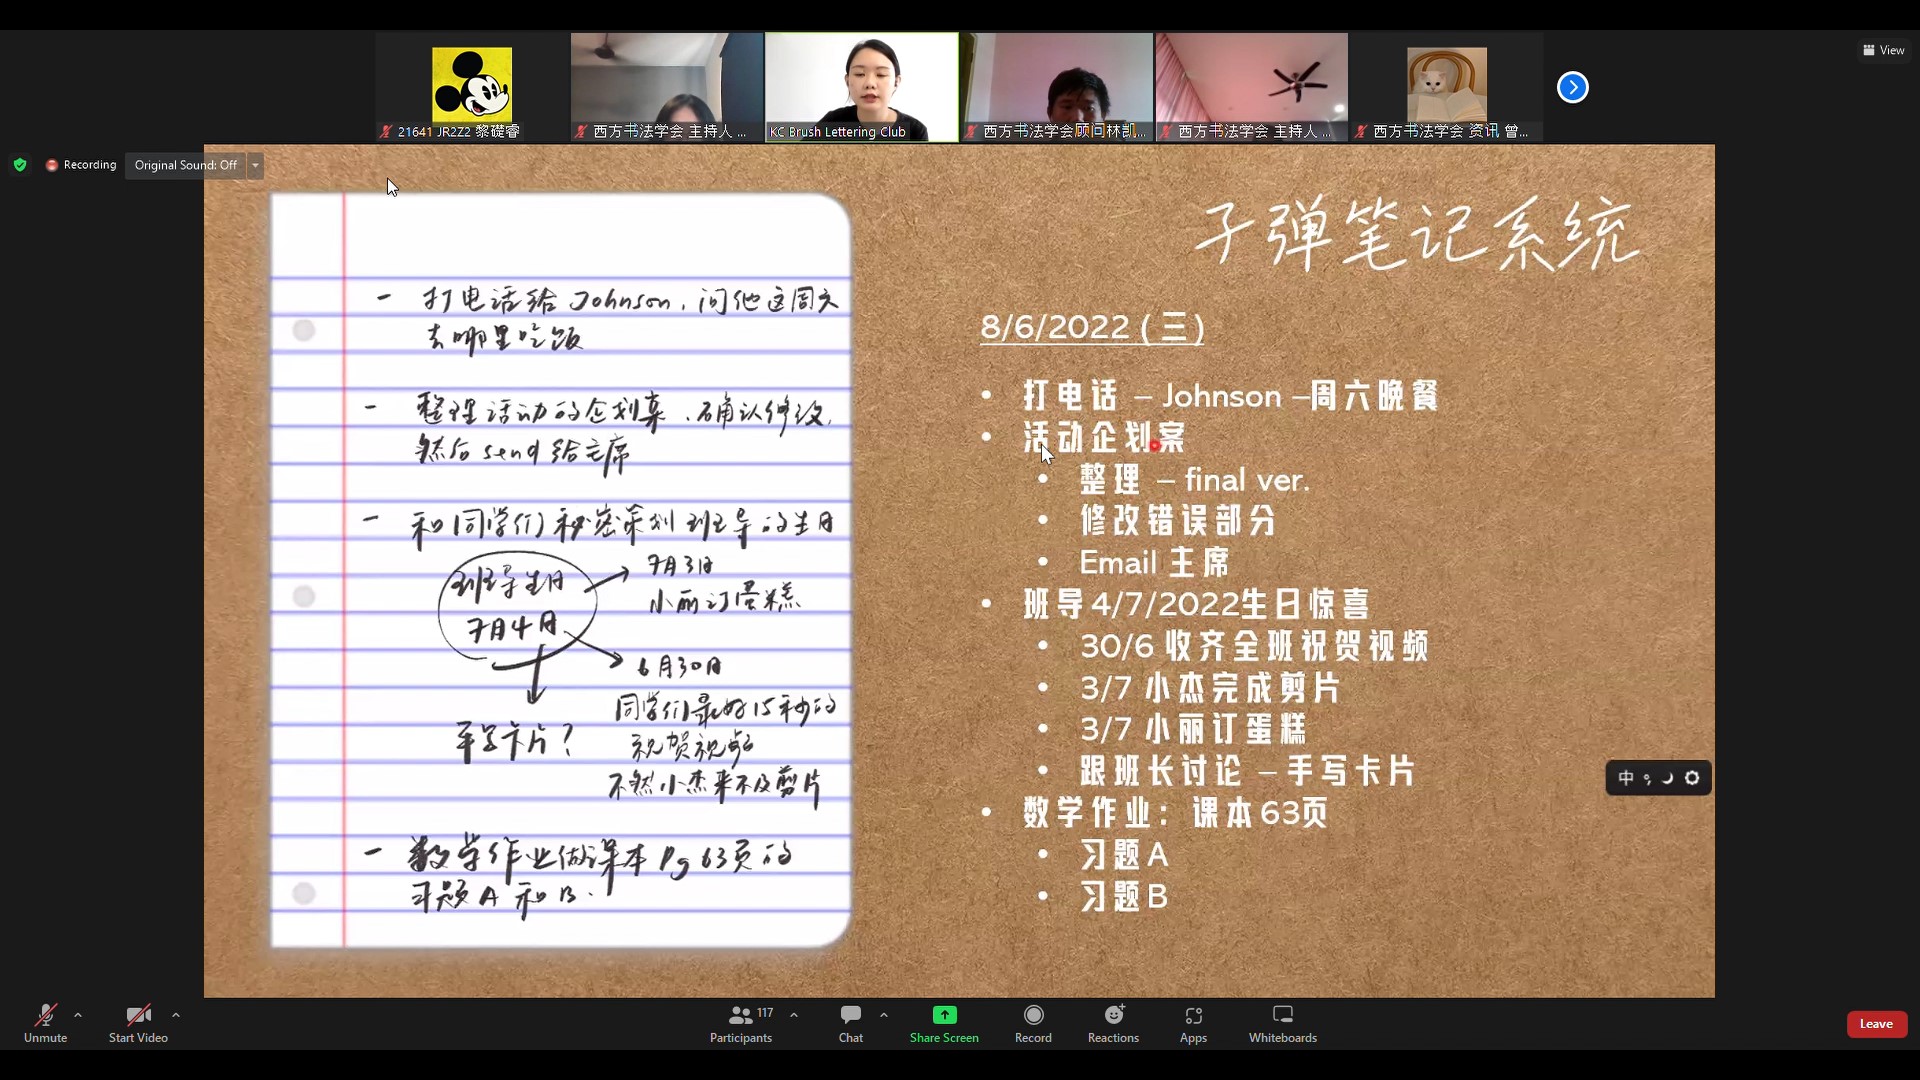 View
21641 JR2Z2 黎礎睿
西方书法学会 主持人 ...
KC Brush Lettering Club
西方书法学会顾问林凯...
西方书法学会 主持人 ...
西方书法学会 资讯 曾...
Recording
Original Sound: Off
子弹笔记系统
- 打电话给 Johnson, 问他这周六
去哪里吃饭
- 整理活动的企划案、确认修改,
然后 send 给主席
- 和同学们秘密策划班导的生日
班导生日
7月4日
7月3日
小丽订蛋糕
6月30日
同学们录好15秒的
祝贺视频
不然小杰来不及剪片
手写卡片?
- 数学作业做课本 Pg 63页的
习题 A 和 B.
8/6/2022 ( 三 )
• 打电话 – Johnson –周六晚餐
• 活动企划案
• 整理 – final ver.
• 修改错误部分
• Email 主席
• 班导 4/7/2022生日惊喜
• 30/6 收齐全班祝贺视频
• 3/7 小杰完成剪片
• 3/7 小丽订蛋糕
• 跟班长讨论 – 手写卡片
• 数学作业：课本 63页
• 习题 A
• 习题 B
中
Unmute
Start Video
117
Participants
Chat
Share Screen
Record
Reactions
Apps
Whiteboards
Leave